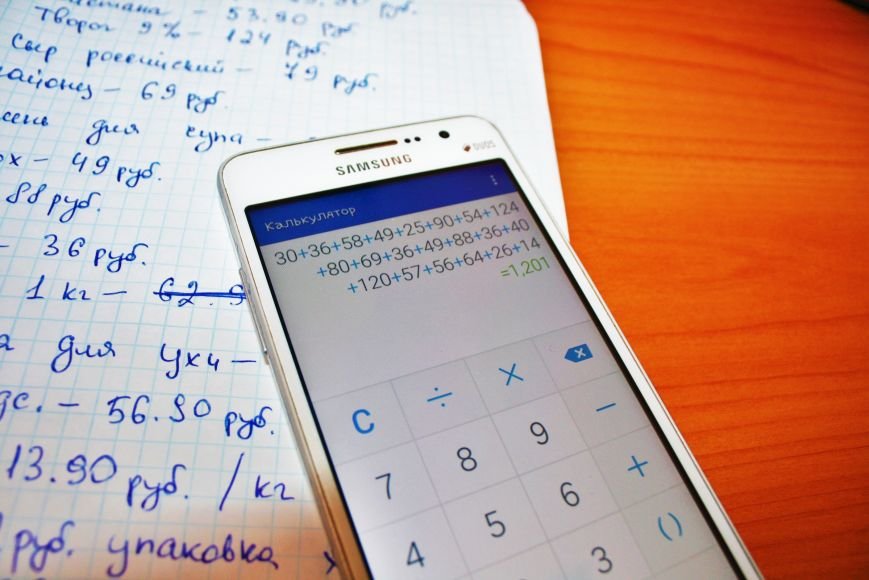 53.90 руб.
Творог 9% - 124 руб.
Сыр российский - 79 руб.
- 69 руб.
для супа -
- 49 руб.
88 руб.
- 36 руб.
1 кг -
для ухи -
- 56.90 руб.
13.90 руб. / кг
руб. упаковка
SAMSUNG
DUOS
Калькулятор
30+36+58+49+25+90+54+124
+80+69+36+49+88+36+40
+120+57+56+64+26+14
=1,201
C ÷ ×
7 8 9 −
4 5 6 +
3 ()